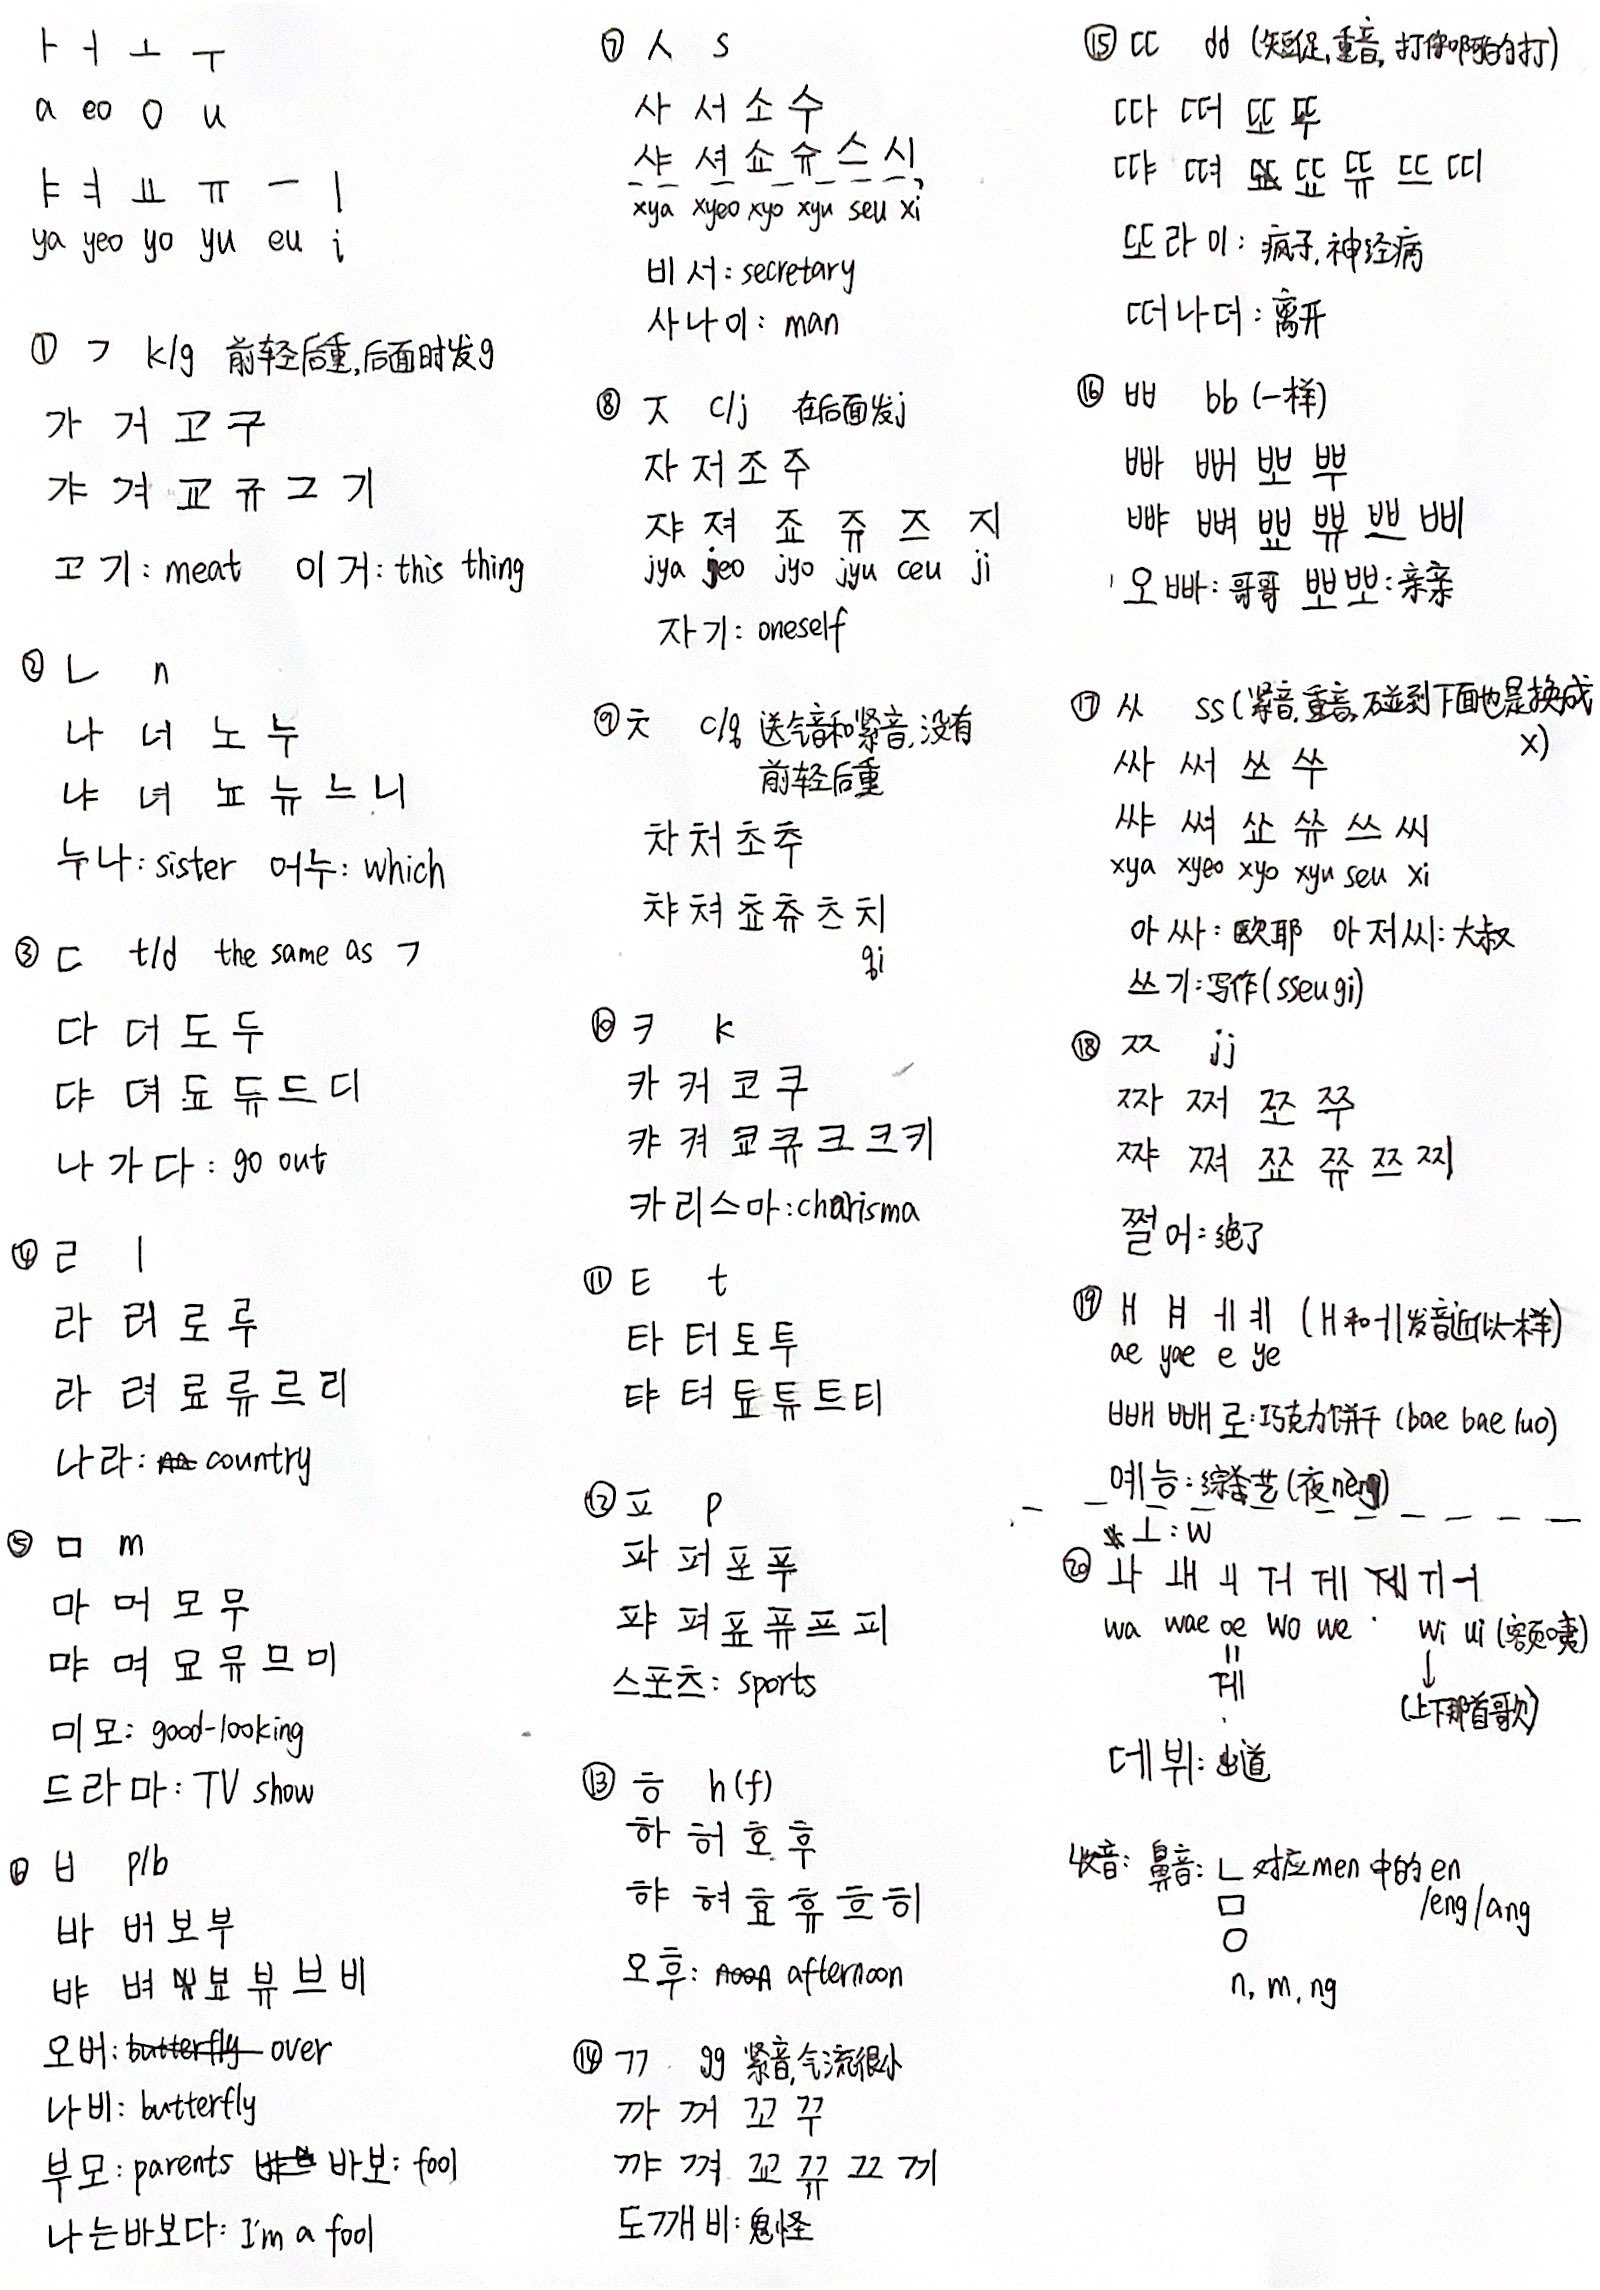 ㅏ ㅓ ㅗ ㅜ
a eo o u
ㅑ ㅕ ㅛ ㅠ ㅡ ㅣ
ya yeo yo yu eu i
① ㄱ k/g 前轻后重,后面时发g
가 거 고 구
갸 겨 교 규 그 기
고기: meat 이거: this thing
② ㄴ n
나 너 노 누
냐 녀 뇨 뉴 느 니
누나: sister 어누: which
③ ㄷ t/d the same as ㄱ
다 더 도 두
댜 뎌 됴 듀 드 디
나가다: go out
④ ㄹ l
라 러 로 루
라 려 료 류 르 리
나라: country
⑤ ㅁ m
마 머 모 무
먀 며 묘 뮤 므 미
미모: good-looking
드라마: TV show
⑥ ㅂ p/b
바 버 보 부
뱌 벼 뵤 뷰 브 비
오버: butterfly over
나비: butterfly
부모: parents 바보: fool
나는바보다: I'm a fool
⑦ ㅅ s
사 서 소 수
샤 셔 쇼 슈 스 시
xya xyeo xyo xyu seu xi
비서: secretary
사나이: man
⑧ ㅈ c/j 在后面发j
자 저 조 주
쟈 져 죠 쥬 즈 지
jya jeo jyo jyu ceu ji
자기: oneself
⑨ ㅊ c/q 送气音和紧音,没有
前轻后重
차 처 초 추
챠 쳐 쵸 츄 츠 치
qi
⑩ ㅋ k
카 커 코 쿠
캬 켜 쿄 큐 크 크 키
카리스마: charisma
⑪ ㅌ t
타 터 토 투
탸 텨 툐 튜 트 티
⑫ ㅍ p
파 퍼 포 푸
퍄 펴 표 퓨 프 피
스포츠: sports
⑬ ㅎ h(f)
하 허 호 후
햐 혀 효 휴 흐 히
오후: afternoon
⑭ ㄲ gg 紧音,气流很小
까 꺼 꼬 꾸
꺄 껴 꼬 뀨 끄 끼
도깨비: 鬼怪
⑮ ㄸ dd (短促,重音,打你啊的打)
따 떠 또 뚜
땨 뗘 뚀 뜌 뜨 띠
또라이: 疯子,神经病
떠나더: 离开
⑯ ㅃ bb (一样)
빠 뻐 뽀 뿌
뺘 뼈 뾰 쀼 쁘 삐
오빠: 哥哥 뽀뽀: 亲亲
⑰ ㅆ ss (紧音,重音,碰到下面也是换成
x)
싸 써 쏘 쑤
쌰 쎠 쑈 쓔 쓰 씨
xya xyeo xyo xyu seu xi
아싸: 欧耶 아저씨: 大叔
쓰기: 写作(sseugi)
⑱ ㅉ jj
짜 쩌 쪼 쭈
쨔 쪄 쬬 쮸 쯔 찌
쩔어: 绝了
⑲ ㅐ ㅒ ㅔ ㅖ (ㅐ和ㅔ发音近似一样)
ae yae e ye
빼빼로: 巧克力饼干 (bae bae luo)
예능: 综艺 (夜neng)
* ㅗ: w
⑳ ㅘ ㅙ ㅚ ㅝ ㅞ ㅟ ㅢ
wa wae oe wo we wi ui (额咦)
=
ㅞ
↓
(上下那首歌)
데뷔: 出道
收音: 鼻音: ㄴ 对应men 中的en
ㅁ /eng/ang
ㅇ
n, m, ng